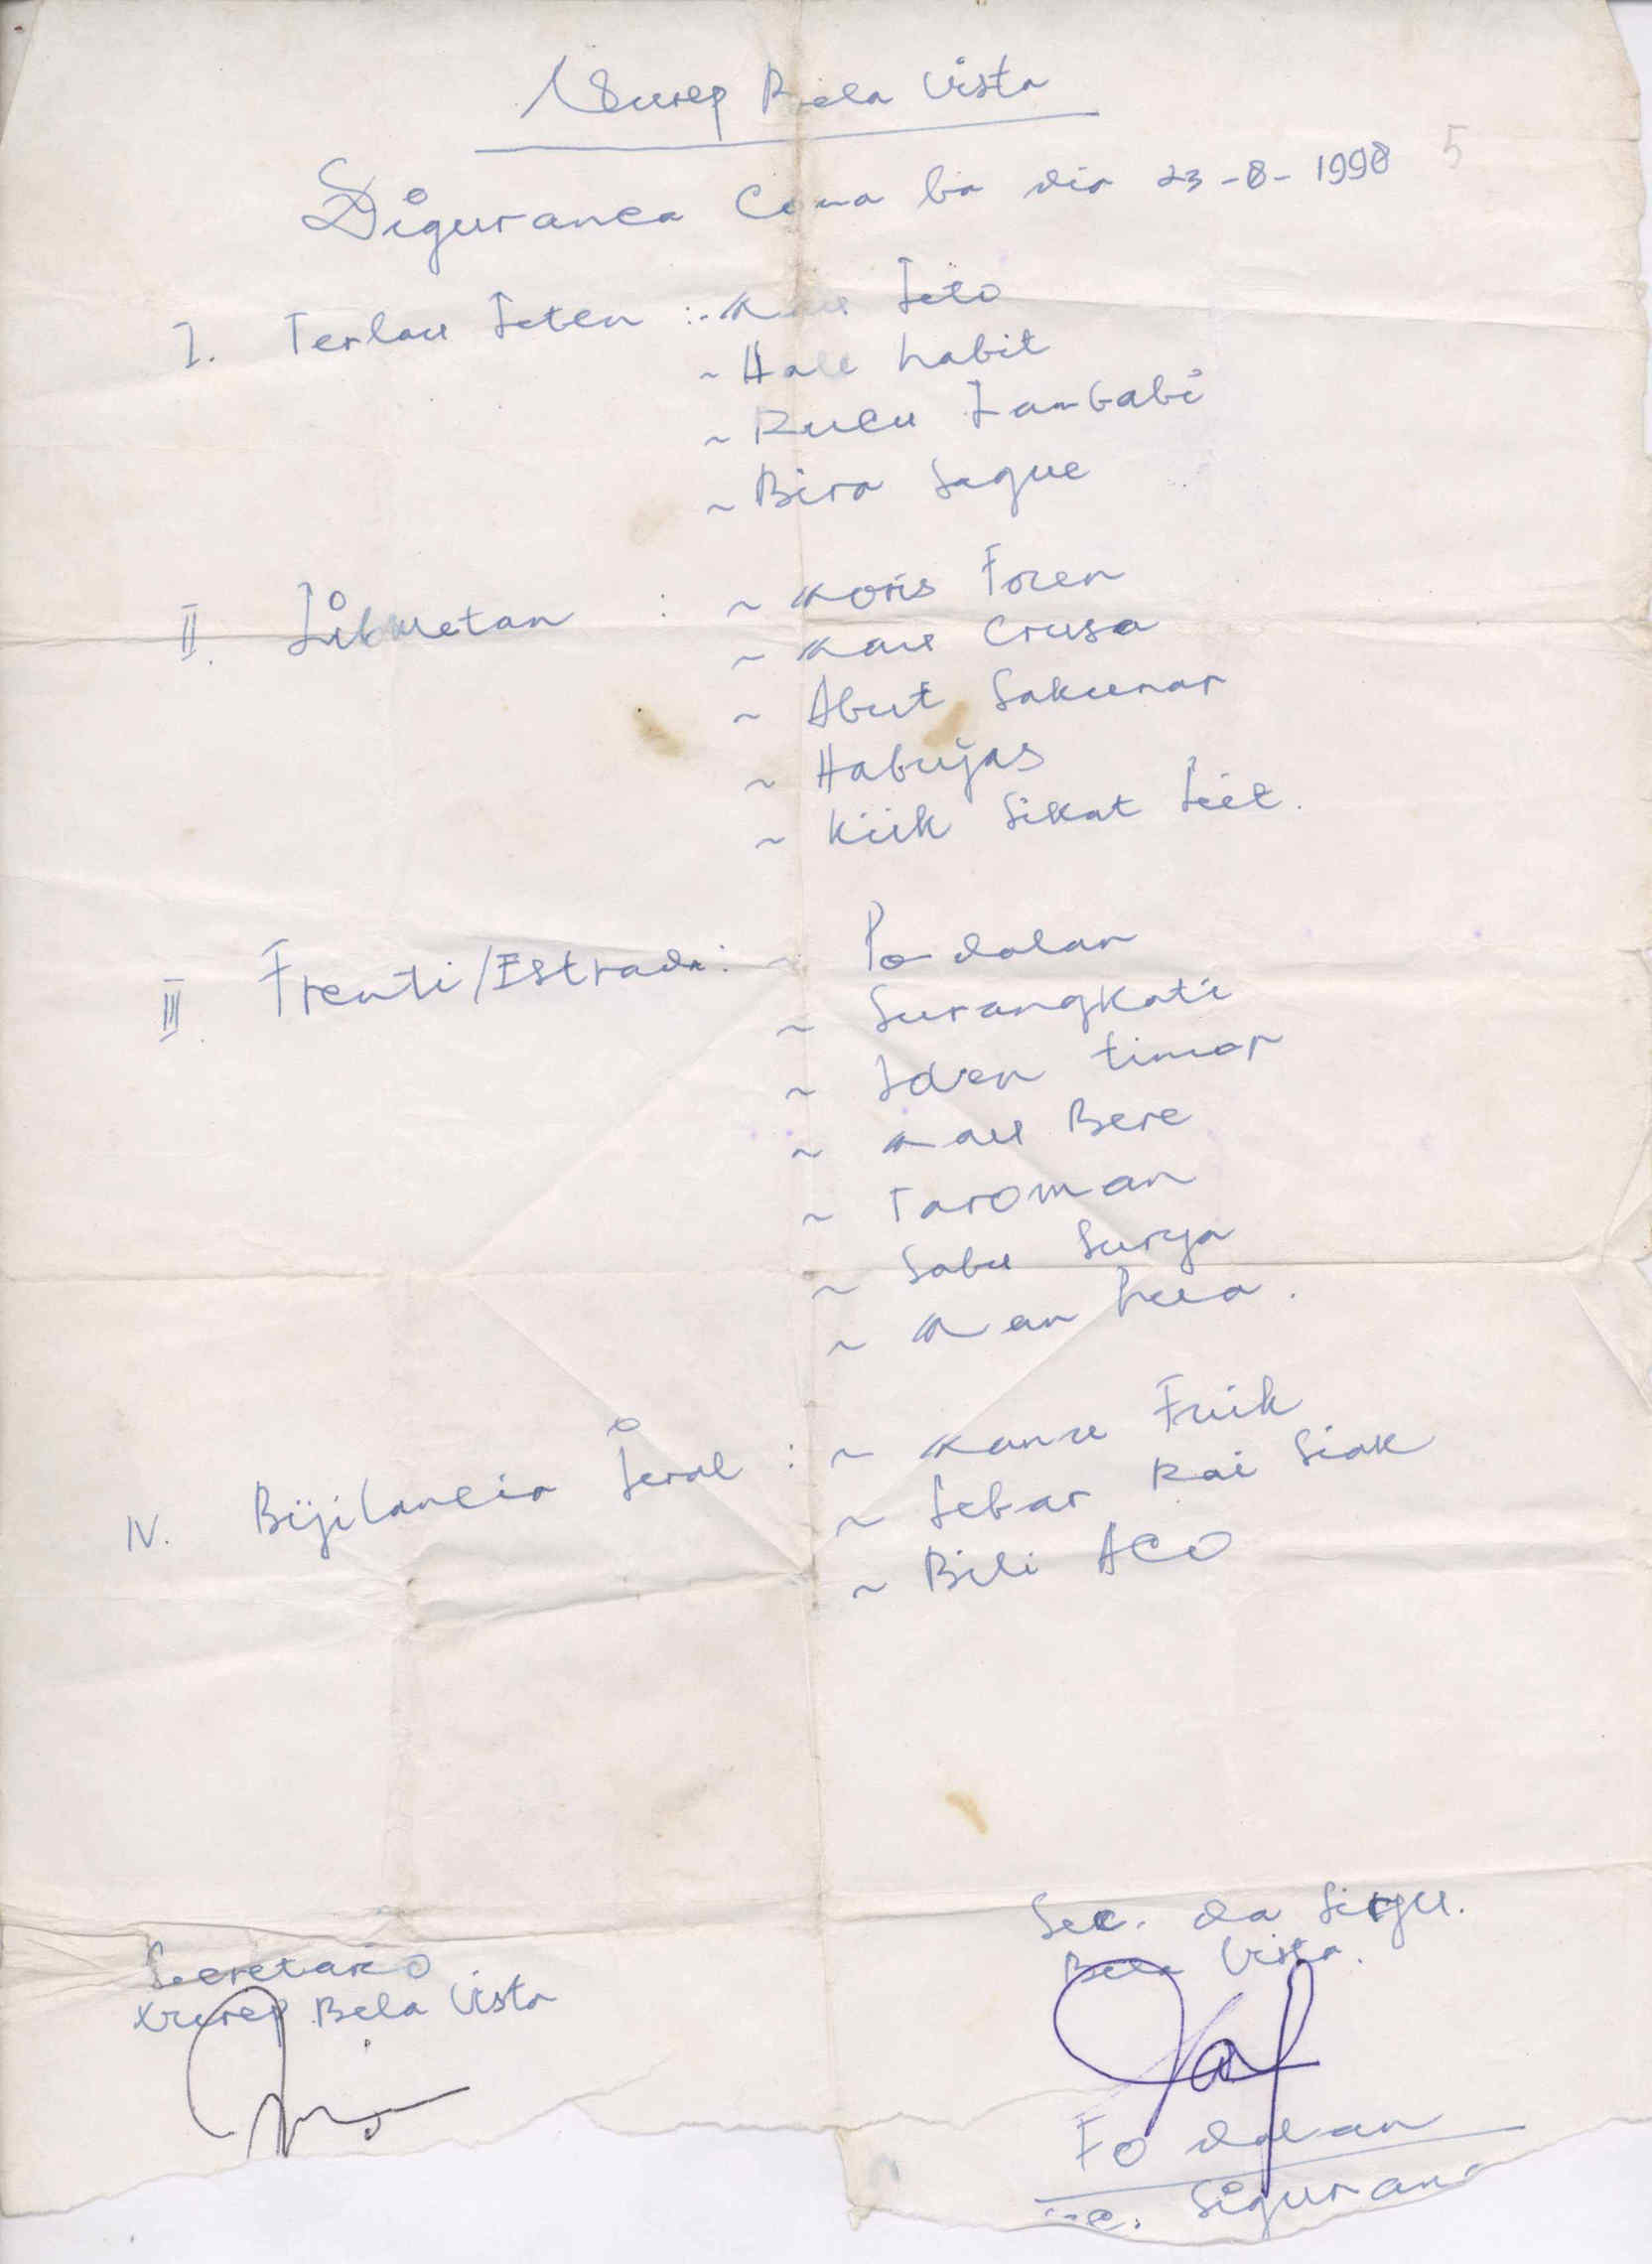 Nurep Bela Vista
Siguranca Cona ba dia 23-8-1998 5
I. Terlau Leten :- Kau Leto
~ Hale habit
~ Rucu Lambabi
~ Bira Sague
II. Libmetan : ~ Koris Foren
~ Kau Crusa
~ Abut Sakunar
~ Habujas
~ Kiik Sikat Liit.
III. Frenti/Estrada: ~ Fo dalan
~ Surangkati
~ Iden timor
~ Kau Bere
~ Taroman
~ Sabu Surya
~ Kan hua.
IV. Bijilancia Jeral : ~ Kanu Fuik
~ Lebar Rai Siak
~ Bili ACO
Sec. da Sigu.
Bela Vista.
Secretario
Nurep Bela Vista
Fo dalan
Siguran